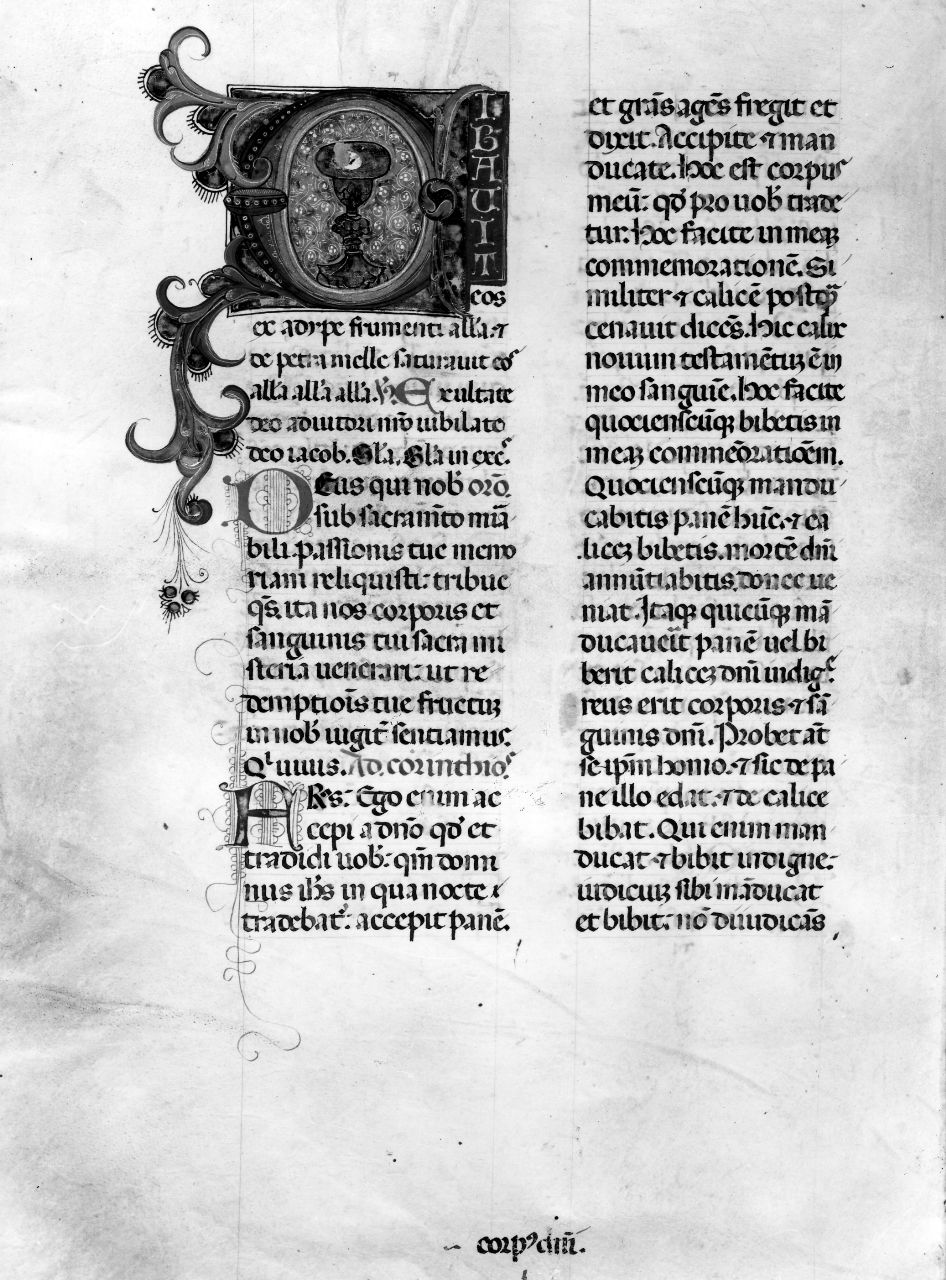 CIBAVIT
eos
ex adipe frumenti all'a. ⁊
de petra melle saturauit eos
all'a all'a all'a. V̄. Exultate
deo adiutori nr̄o iubilate
deo iacob. Gl'a. Gl'a in exc̄.
Deus qui nob̄ oro.
sub sacram̄to mira
bili. passionis tue memo
riam reliquisti: tribue
q̄s. ita nos corporis et
sanguinis tui sacra mi
steria uenerari: ut re
demptiōis tue fructuꝫ
in nob̄ iugit̄ sentiamus.
Qⁱ uiuis. Ad. corinthios.
FRēs: Ego enim ac
cepi a dn̄o qđ et
tradidi uob̄: qm̄ domi
nus ih̄s in qua nocte
tradebat᷑: accepit panē.
et grās agēs fregit et
dixit. Accipite ⁊ man
ducate. Hoc est corpus
meū: qđ pro uob̄ trade
tur. Hoc facite in meaꝫ
commemorationē. Si
militer ⁊ calicē postq̄
cenauit dicēs. Hic calix
nouum testamētuꝫ ē in
meo sanguīe. Hoc facite
quocienscūqꝫ bibetis in
meaꝫ commēoratiōem.
Quocienscūqꝫ mandu
cabitis panē hūc. ⁊ ca
liceꝫ bibetis. mortē dn̄i
annūtiabitis. donec ue
niat. Itaqꝫ quicūqꝫ mā
ducauēit panē uel bi
berit caliceꝫ dn̄i indigᷓ.
reus erit corporis ⁊ sā
guinis dn̄i. Probet at̄
se ip̄m homo. ⁊ sic de pa
ne illo edat. ⁊ de calice
bibat. Qui enim man
ducat ⁊ bibit indigne:
iudiciuꝫ sibi māducat
et bibit: nō diiudicās
corpꝰ dn̄i.